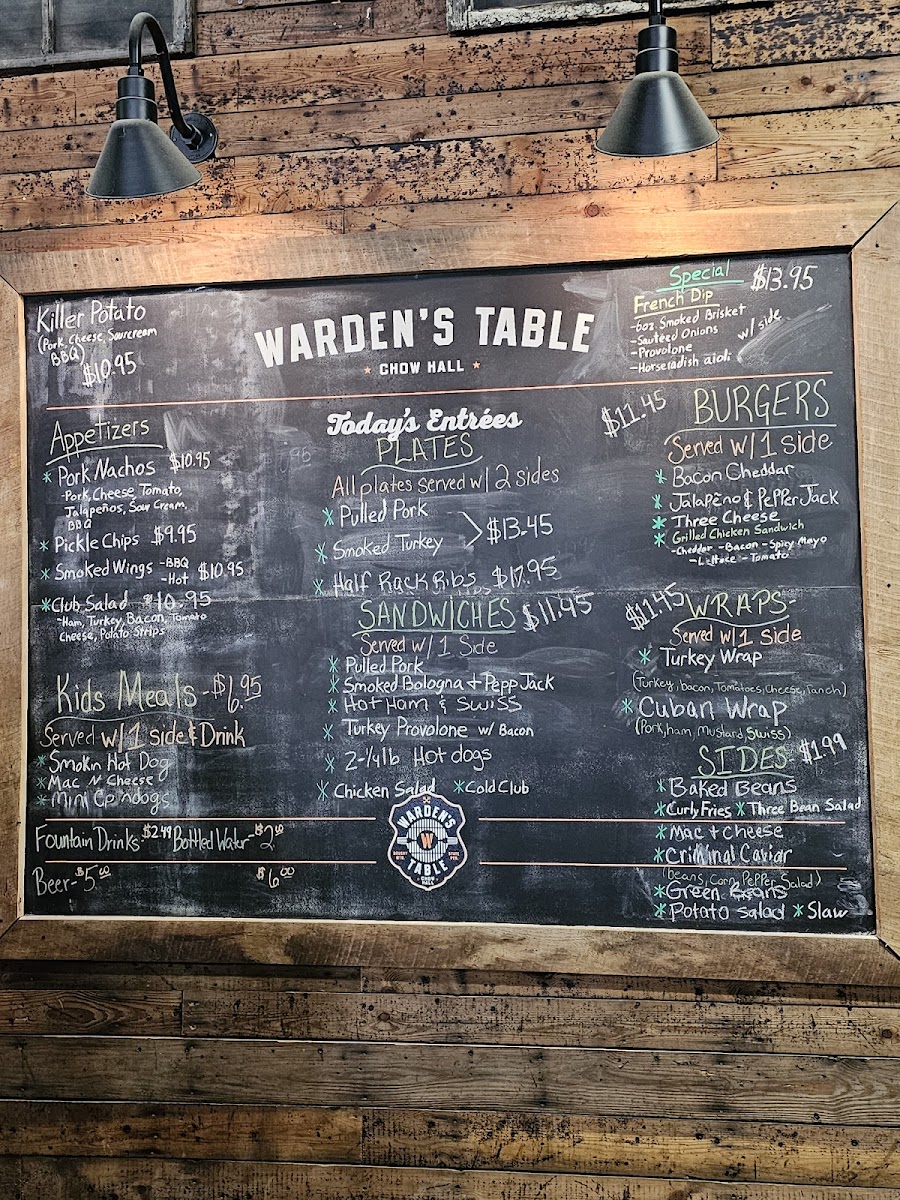 Killer Potato
(Pork, Cheese, Sourcream
BBQ)
$10.95
WARDEN'S TABLE
CHOW HALL
Special $13.95
French Dip
-6oz Smoked Brisket
-Sauteed Onions
-Provolone
-Horseradish aioli
w/ side
Appetizers
* Pork Nachos $10.95
-Pork, Cheese, Tomato,
Jalapeños, Sour Cream,
BBQ
* Pickle Chips $9.95
* Smoked Wings -BBQ
-Hot $10.95
* Club Salad $10.95
-Ham, Turkey, Bacon, Tomato
Cheese, Potato Strips
Kids Meals - $6.95
Served w/ 1 side & Drink
* Smokn Hot Dog
* Mac N Cheese
* Mini Corndogs
Today's Entrées
PLATES
All plates served w/ 2 sides
* Pulled Pork
* Smoked Turkey
$13.45
* Half Rack Ribs $17.95
SANDWICHES $11.45
Served w/ 1 Side
* Pulled Pork
* Smoked Bologna + Pepp Jack
* Hot Ham & Swiss
* Turkey Provolone w/ Bacon
* 2-1/4lb Hot dogs
* Chicken Salad * Cold Club
$11.45 BURGERS
Served w/ 1 side
* Bacon Cheddar
* Jalapeño & Pepper Jack
* Three Cheese
* Grilled Chicken Sandwich
-Cheddar -Bacon -Spicy Mayo
-Lettuce -Tomato
$11.45 WRAPS-
Served w/ 1 Side
* Turkey Wrap
(Turkey, bacon, Tomatoes, Cheese, ranch)
* Cuban Wrap
(Pork, ham, Mustard, Swiss)
SIDES $1.99
* Baked Beans
* Curly Fries * Three Bean Salad
* Mac + Cheese
* Criminal Caviar
(beans, Corn, Pepper, Salad)
* Green Beans
* Potato Salad * Slaw
Fountain Drinks- $2.49 Bottled Water- $2.00
Beer- $5.00 $6.00
WARDEN'S
W
TABLE
CHOW
HALL